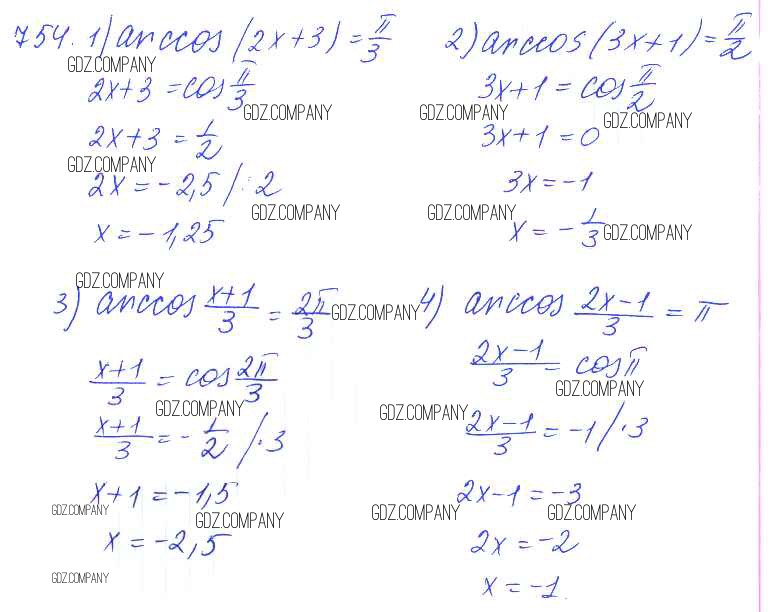 754. 1) arccos(2x+3) = π/3
GDZ.COMPANY
2x+3 = cos π/3
GDZ.COMPANY
2x+3 = 1/2
GDZ.COMPANY
2x = -2,5 /:2
GDZ.COMPANY
x = -1,25
2) arccos(3x+1) = π/2
3x+1 = cos π/2
GDZ.COMPANY
GDZ.COMPANY
3x+1 = 0
3x = -1
GDZ.COMPANY
x = -1/3
GDZ.COMPANY
GDZ.COMPANY
3) arccos (x+1)/3 = 2π/3
GDZ.COMPANY
(x+1)/3 = cos 2π/3
GDZ.COMPANY
(x+1)/3 = -1/2 /·3
x+1 = -1,5
GDZ.COMPANY
GDZ.COMPANY
x = -2,5
GDZ.COMPANY
4) arccos (2x-1)/3 = π
(2x-1)/3 = cos π
GDZ.COMPANY
GDZ.COMPANY
(2x-1)/3 = -1 /·3
2x-1 = -3
GDZ.COMPANY
GDZ.COMPANY
2x = -2
x = -1.